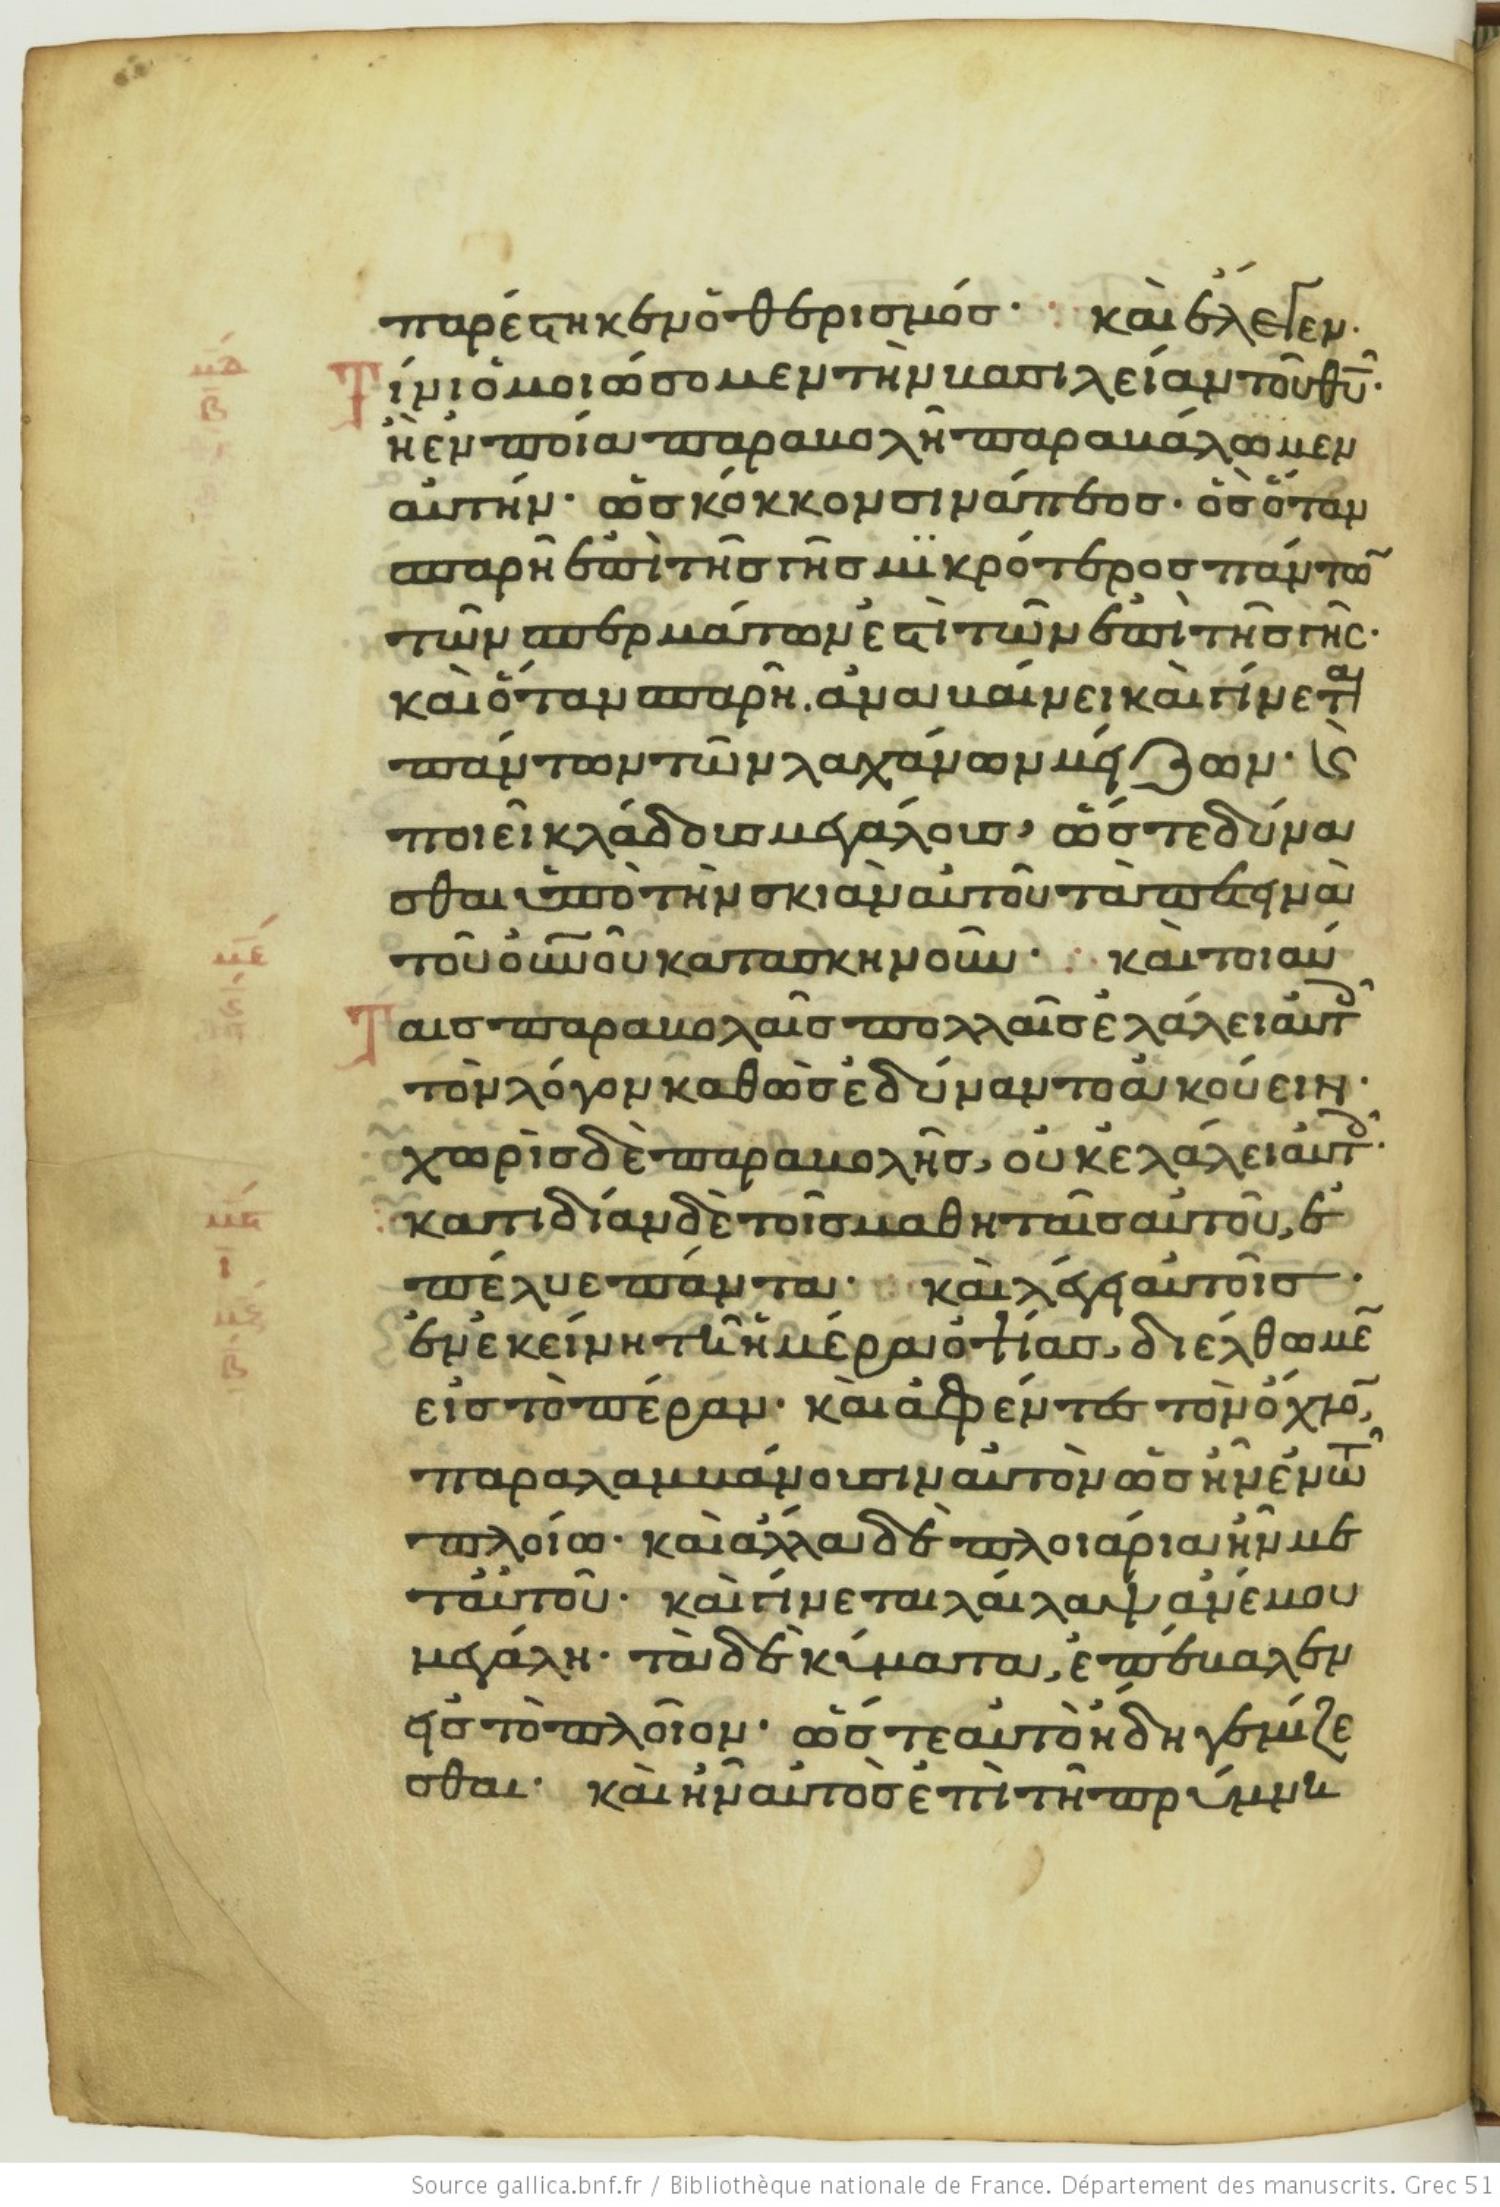 παρέστηκεν ὁ θερισμός· καὶ ἔλεγεν·
Τίνι ὁμοιώσομεν τὴν βασιλείαν τοῦ θυ̅·
ἢ ἐν ποία παραβολῆ παραβάλωμεν
αὐτήν· ὡς κόκκον σινάπεος· ὃς ὅταν
σπαρῆ ἐπὶ τῆς γῆς μϊκρότερος πάντω̅
τῶν σπερμάτων ἐστὶ τῶν ἐπὶ τῆς γῆς·
καὶ ὅταν σπαρῆ, ἀναβαίνει καὶ γίνεται
πάντων τῶν λαχάνων μείζων· ϗ̀
ποιεῖ κλάδους μεγάλους, ὥστε δύνα
σθαι ὑπὸ τὴν σκιὰν αὐτοῦ τὰ πετεινὰ
τοῦ οὐν̅οῦ κατασκηνοῦν· καὶ τοιαύ
Ταις παραβολαῖς πολλαῖς ἐλάλει αὐτοῖς
τὸν λόγον καθὼς ἐδύναντο ἀκούειν·
χωρὶς δὲ παραβολῆς, οὐκ ἐλάλει αὐτοῖς·
κατιδίαν δὲ τοῖς μαθηταῖς αὐτοῦ, ἐ
πέλυε πάντα· καὶ λέγει αὐτοῖς·
ἐν ἐκείνη τῆ ἡμέρα ὀψίας, διέλθωμε̅
εἰς τὸ πέραν· καὶ ἀφέντες τὸν ὄχλο̅,
παραλαμβάνουσιν αὐτὸν ὡς ἦν ἐν τῶ
πλοίω· καὶ ἄλλα δὲ πλοιάρια ἦν με
τ αὐτοῦ· καὶ γίνεται λαίλαψ ἀνέμου
μεγάλη· τὰ δὲ κύματα, ἐπέβαλεν
εἰς τὸ πλοῖον· ὥστε αὐτὸ ἤδη γεμίζε
σθαι· καὶ ἦν αὐτὸς ἐπὶ τῆ πρύμνη
Source gallica.bnf.fr / Bibliothèque nationale de France. Département des manuscrits. Grec 51